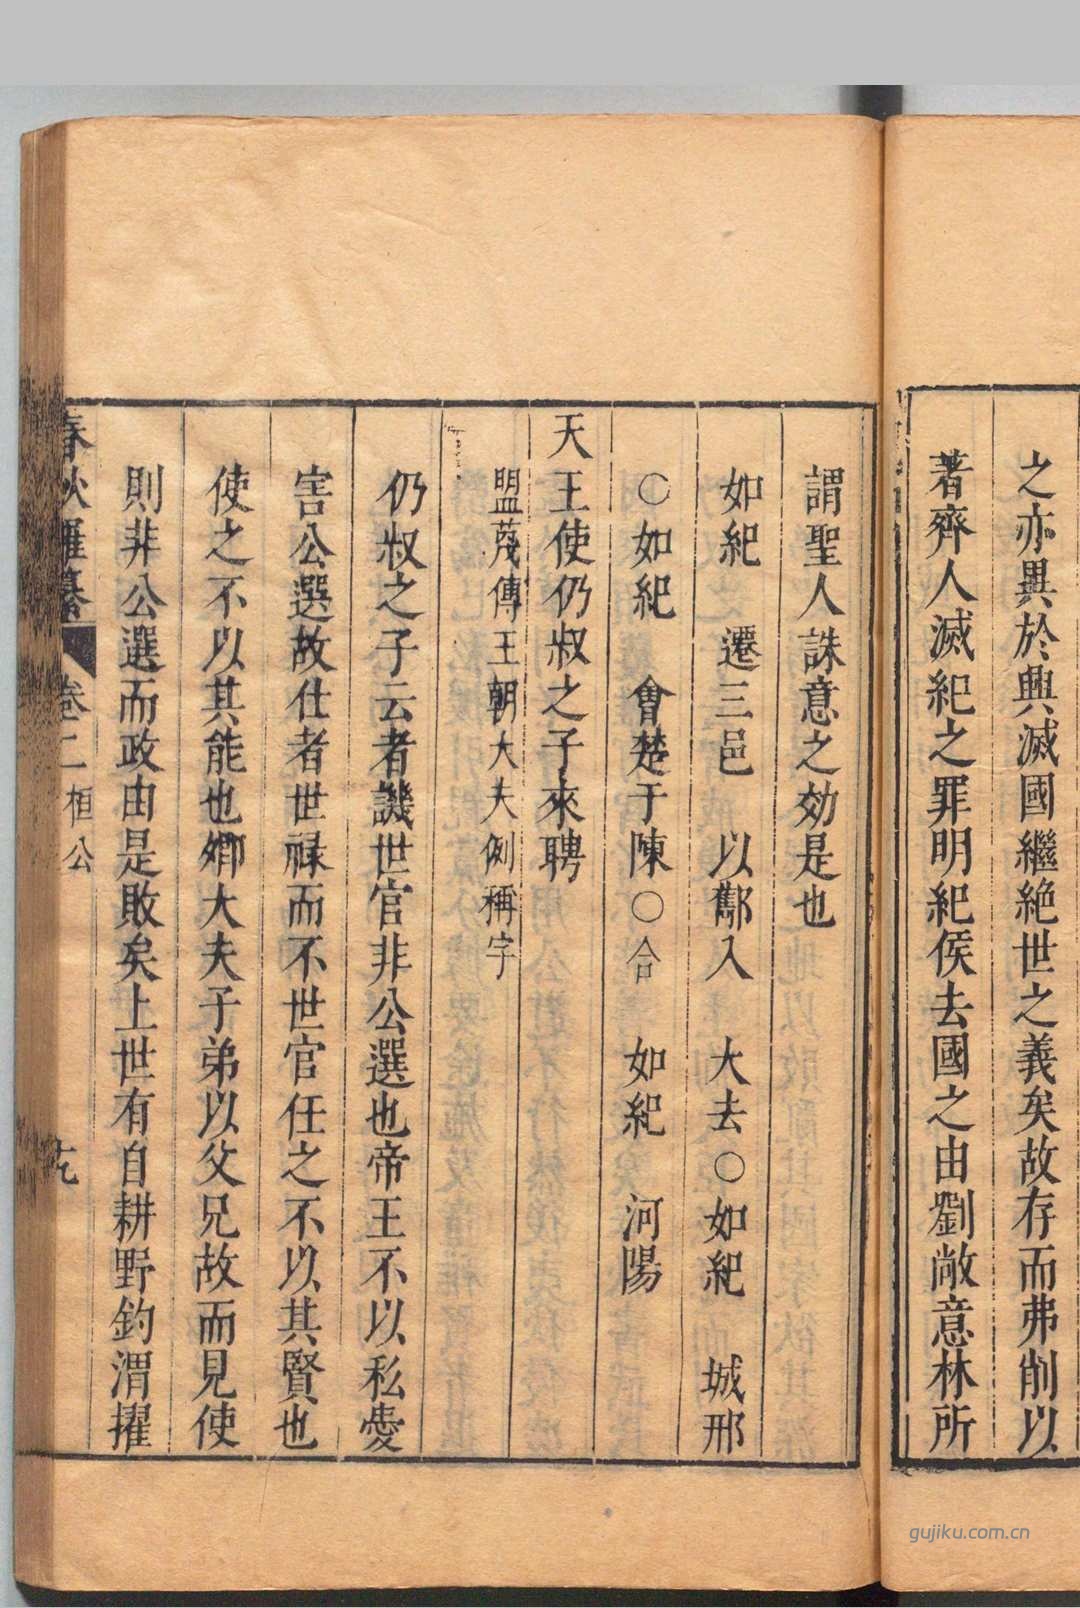 之亦異於興滅國繼絶世之義矣故存而弗削以
著齊人滅紀之罪明紀侯去國之由劉敞意林所
謂聖人誅意之効是也
如紀　遷三邑　以酅入　大去○如紀　城邢
○如紀　會楚于陳○合　如紀　河陽
天王使仍叔之子來聘
盟蔑傳王朝大夫例稱字
仍叔之子云者譏世官非公選也帝王不以私愛
害公選故仕者世禄而不世官任之不以其賢也
使之不以其能也卿大夫子弟以父兄故而見使
則非公選而政由是敗矣上世有自耕野釣渭擢
春秋 卷二 桓公
gujiku.com.cn